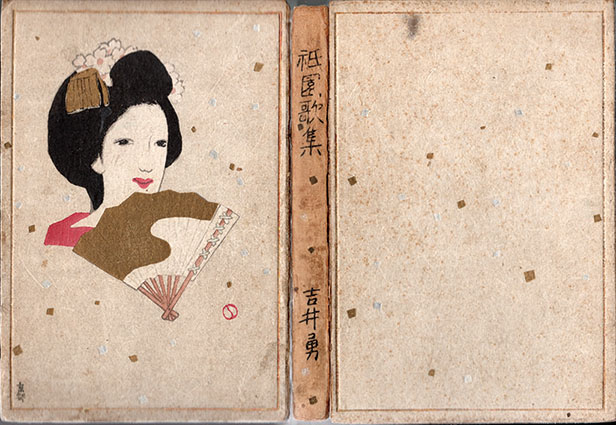 祇園歌集
吉井勇